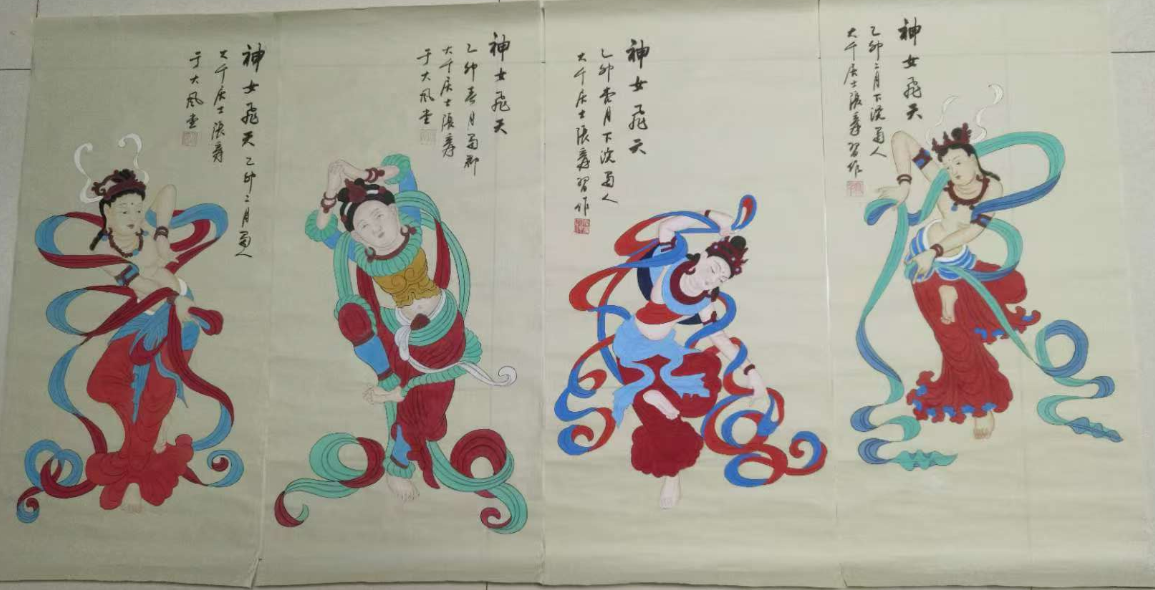 神女飛天 乙卯二月蜀人
大千居士張爰
于大風堂
神女飛天
乙卯春月蜀郡
大千居士張爰
于大風堂
神女飛天
乙卯春月下浣蜀人
大千居士張爰習作
神女飛天
乙卯二月下浣蜀人
大千居士張爰習作